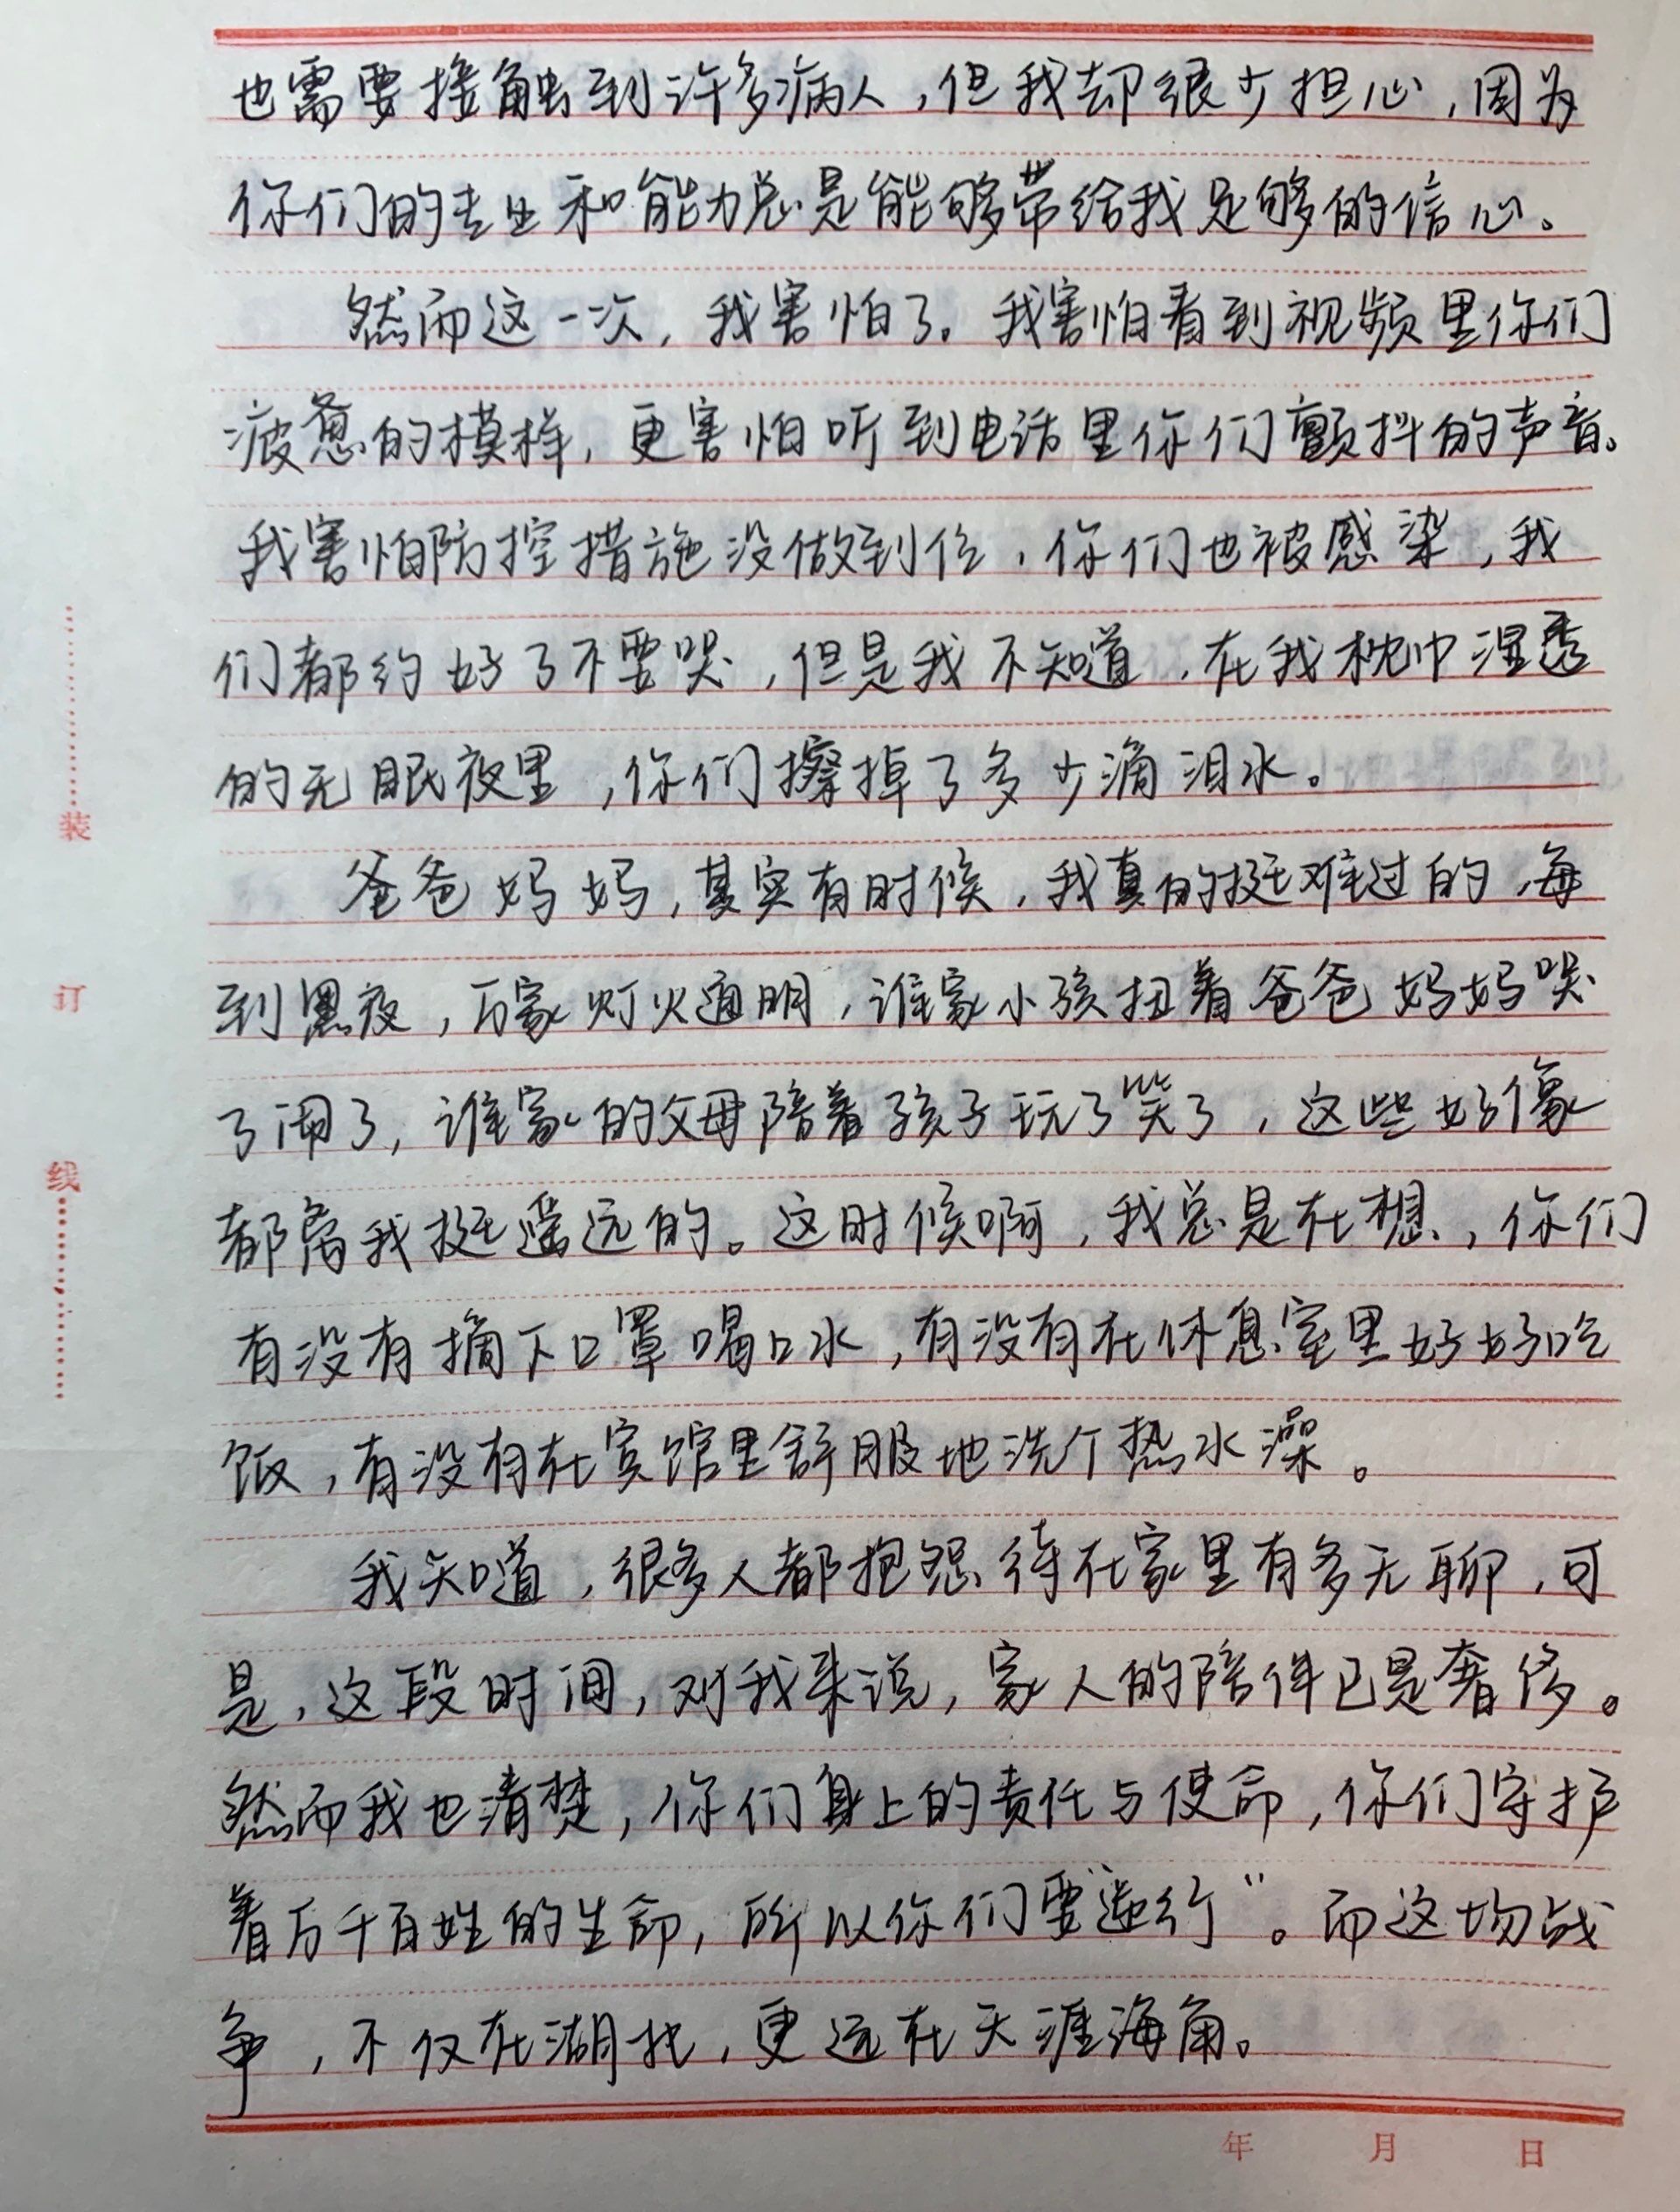 也需要接触到许多病人，但我却很少担心，因为
你们的专业和能力总是能够带给我足够的信心。
然而这一次，我害怕了。我害怕看到视频里你们
疲惫的模样，更害怕听到电话里你们颤抖的声音。
我害怕防控措施没做到位，你们也被感染，我
们都约好了不要哭，但是我不知道，在我枕巾湿透
的无眠夜里，你们擦掉了多少滴泪水。
爸爸妈妈，其实有时候，我真的挺难过的，每
到黑夜，万家灯火通明，谁家小孩扭着爸爸妈妈哭
了闹了，谁家的父母陪着孩子玩了笑了，这些好像
都离我挺遥远的。这时候啊，我总是在想，你们
有没有摘下口罩喝口水，有没有在休息室里好好吃
饭，有没有在宾馆里舒服地洗个热水澡。
我知道，很多人都抱怨待在家里有多无聊，可
是，这段时间，对我来说，家人的陪伴已是奢侈。
然而我也清楚，你们身上的责任与使命，你们守护
着万千百姓的生命，所以你们要“逆行”。而这场战
争，不仅在湖北，更远在天涯海角。
装
订
线
年 月 日